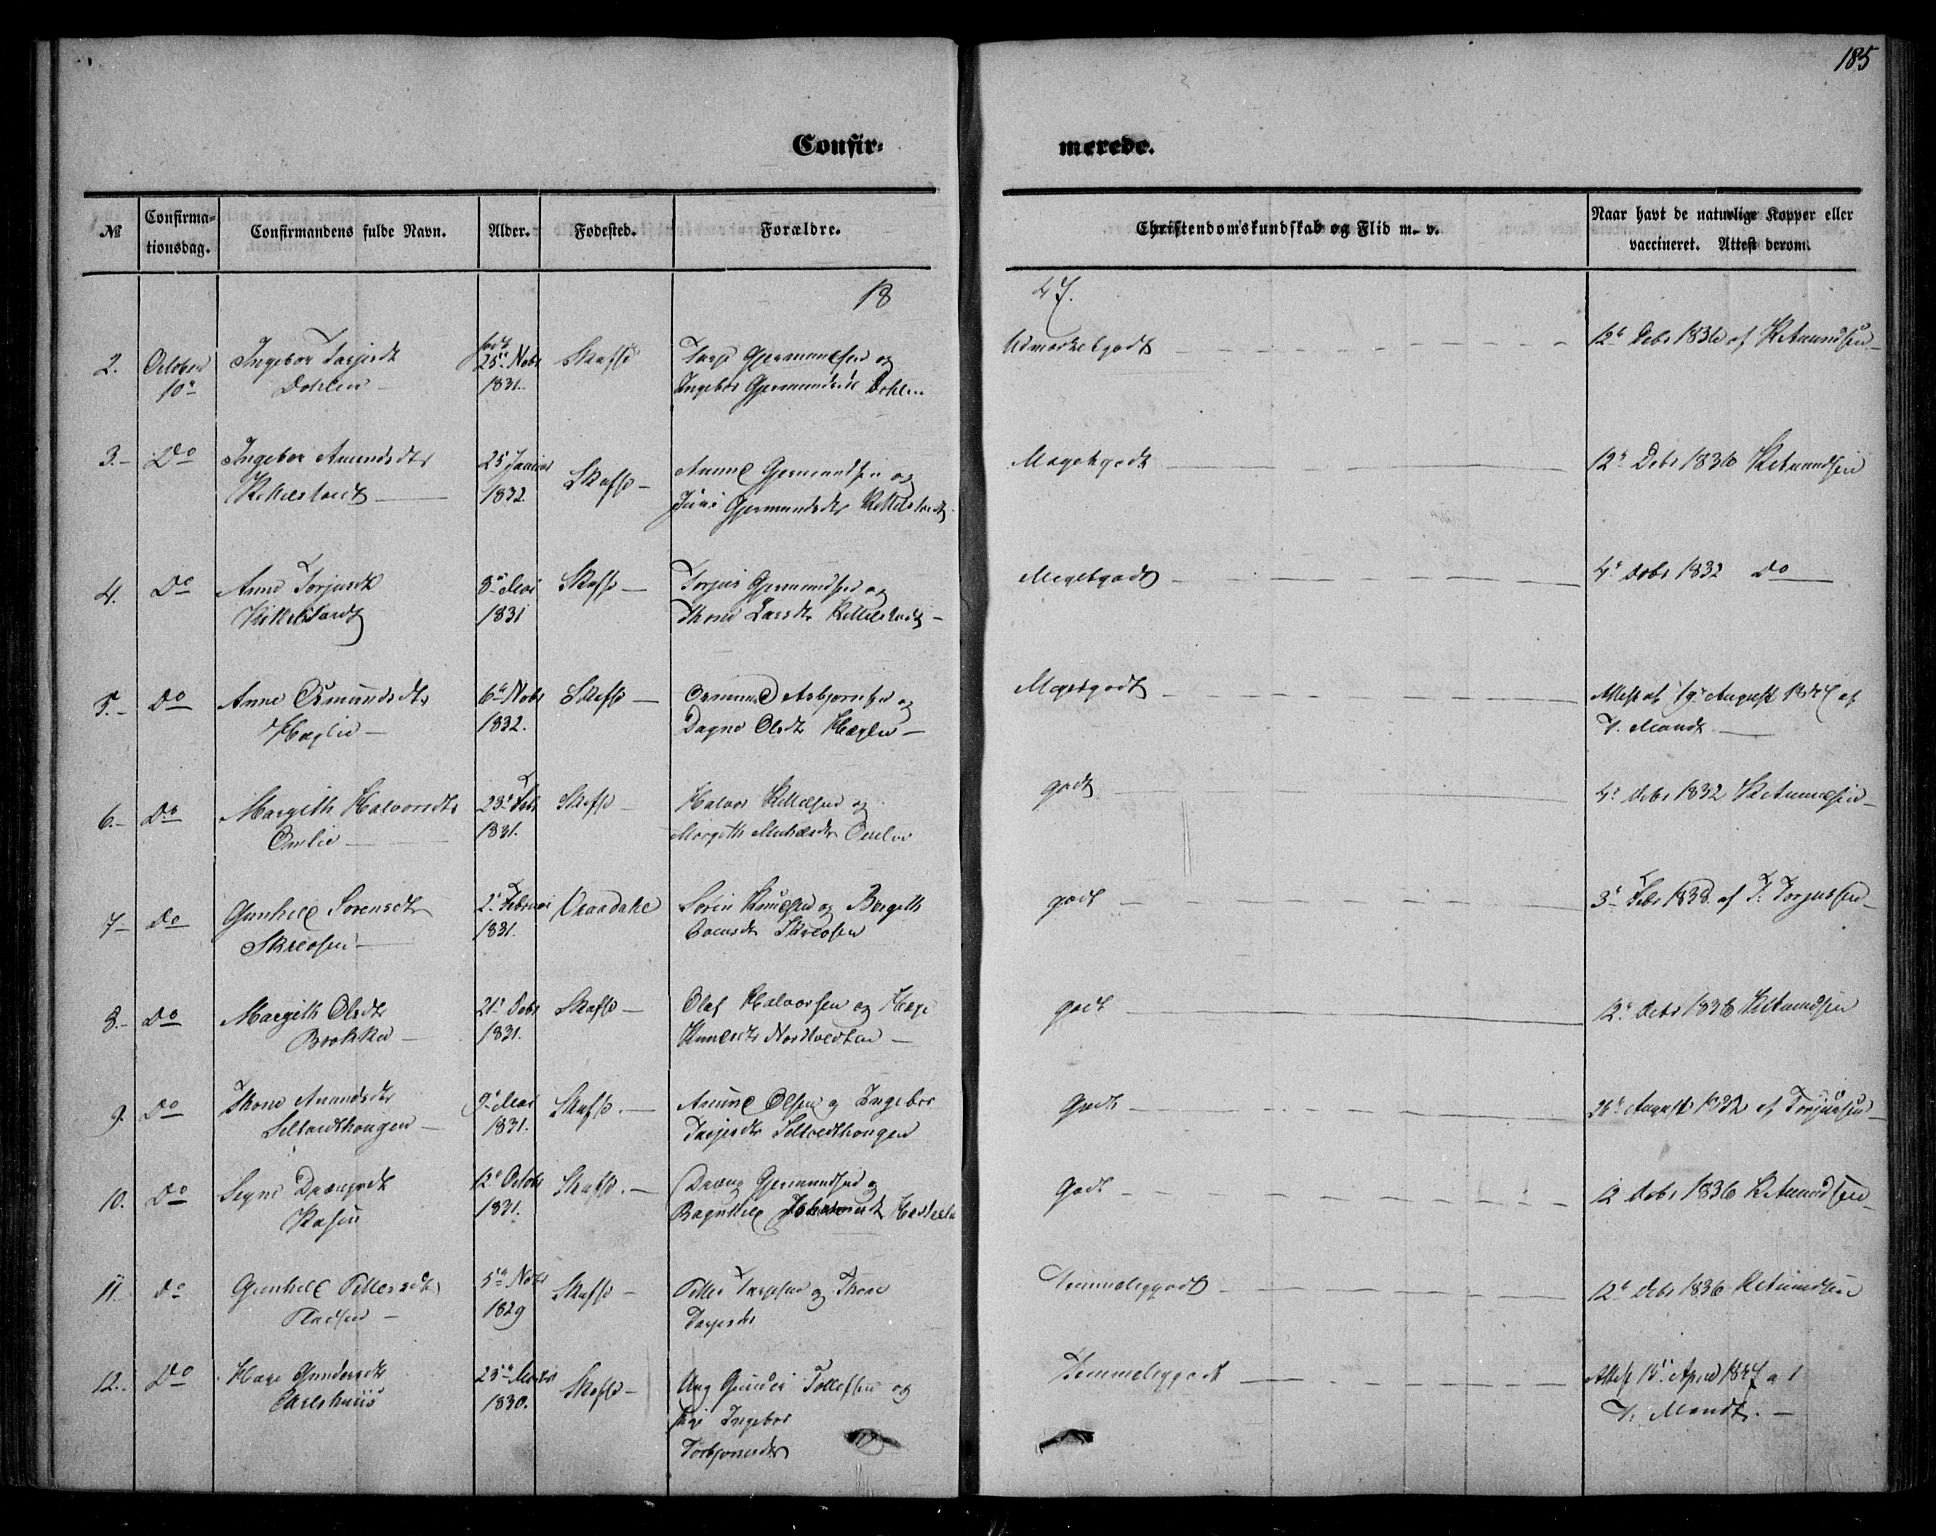 185
Confir- merede.
№ Confirma-tionsdag. Confirmandens fulde Navn. Alder. Fodested. Forældre. Christendomskundskab og Flid m. v. Naar havt de naturlige Kopper eller vaccineret. Attest derom.
18 47.
2. October 10de Ingebor Tarjesdt Dahlen født 25de Nobr 1831. Skafsø Tarje Gjermundsen og Ingebor Gjermundsdt Dahlen Udmærketgodt 12te Debr 1836 af K Amundsen
3. Do Ingebor Aamundsdtr Kittilstvedt 25 Januar 1832. Skafsø Amund Gjermundsen og Gjermundsdtr Megetgodt 12te Debr 1836 K Amundsen
4. Do Anne Torjusdt 3de Mai 1831 Skafsø Torjus Gjermundsen og Thone Larsdtr Megetgodt 4de Debr 1832 Do
5. Do Anne Osmundsdtr Hæglie 6te Nobr 1832. Skafsø Osmund Asbjørnsen og Dagne Olsdtr Hæglie Megetgodt Attest af 19de August 1847 af V. Mandt
6. Do Margith Halvorsdtr Omlie 23de Feb 1831. Skafsø Halvor Kittilsen og Margith Omlie godt 4de Debr 1832 K Amundsen
7 Do Gunhild Sørensdt Skreosen 2de Februar 1831. Vraadahl Søren Knudsen og Bergith Skreosen godt 3de Febr 1833 af T. Torjussen
8. Do Margith Olsdtr Brokka 21de Debr 1831. Skafsø Olaf Halvorsen og Hæge Knudsdtr godt 12te Debr 1836 K Amundsen
9. Do Thone Amundsdtr Seltvedthougen 9de Mai 1831. Skafsø Amund Olsen og Ingebor Tarjesdtr Seltvedthougen Godt 26de August 1832 af Torjussen
10. Do Signe Drængsdt 12te Octobr 1831. Skafsø Dræng Gjermundsen og Godt 12 Debr 1836 K Amundsen
11. Do Gunhild Pettersdtr 5te Nobr 1829 Skafsø Petter Tarjesen og Thone Tarjesdtr Temmeliggodt 12te Debr 1836 K Amundsen
12. Do Hæge Gundersdtr Carlshuus 25de 1830. Skafsø Ung Gunder Tollefsen og Ingebor Torbjørnsdtr Temmeliggodt Attest 15de April 1847 af V. Mandt.